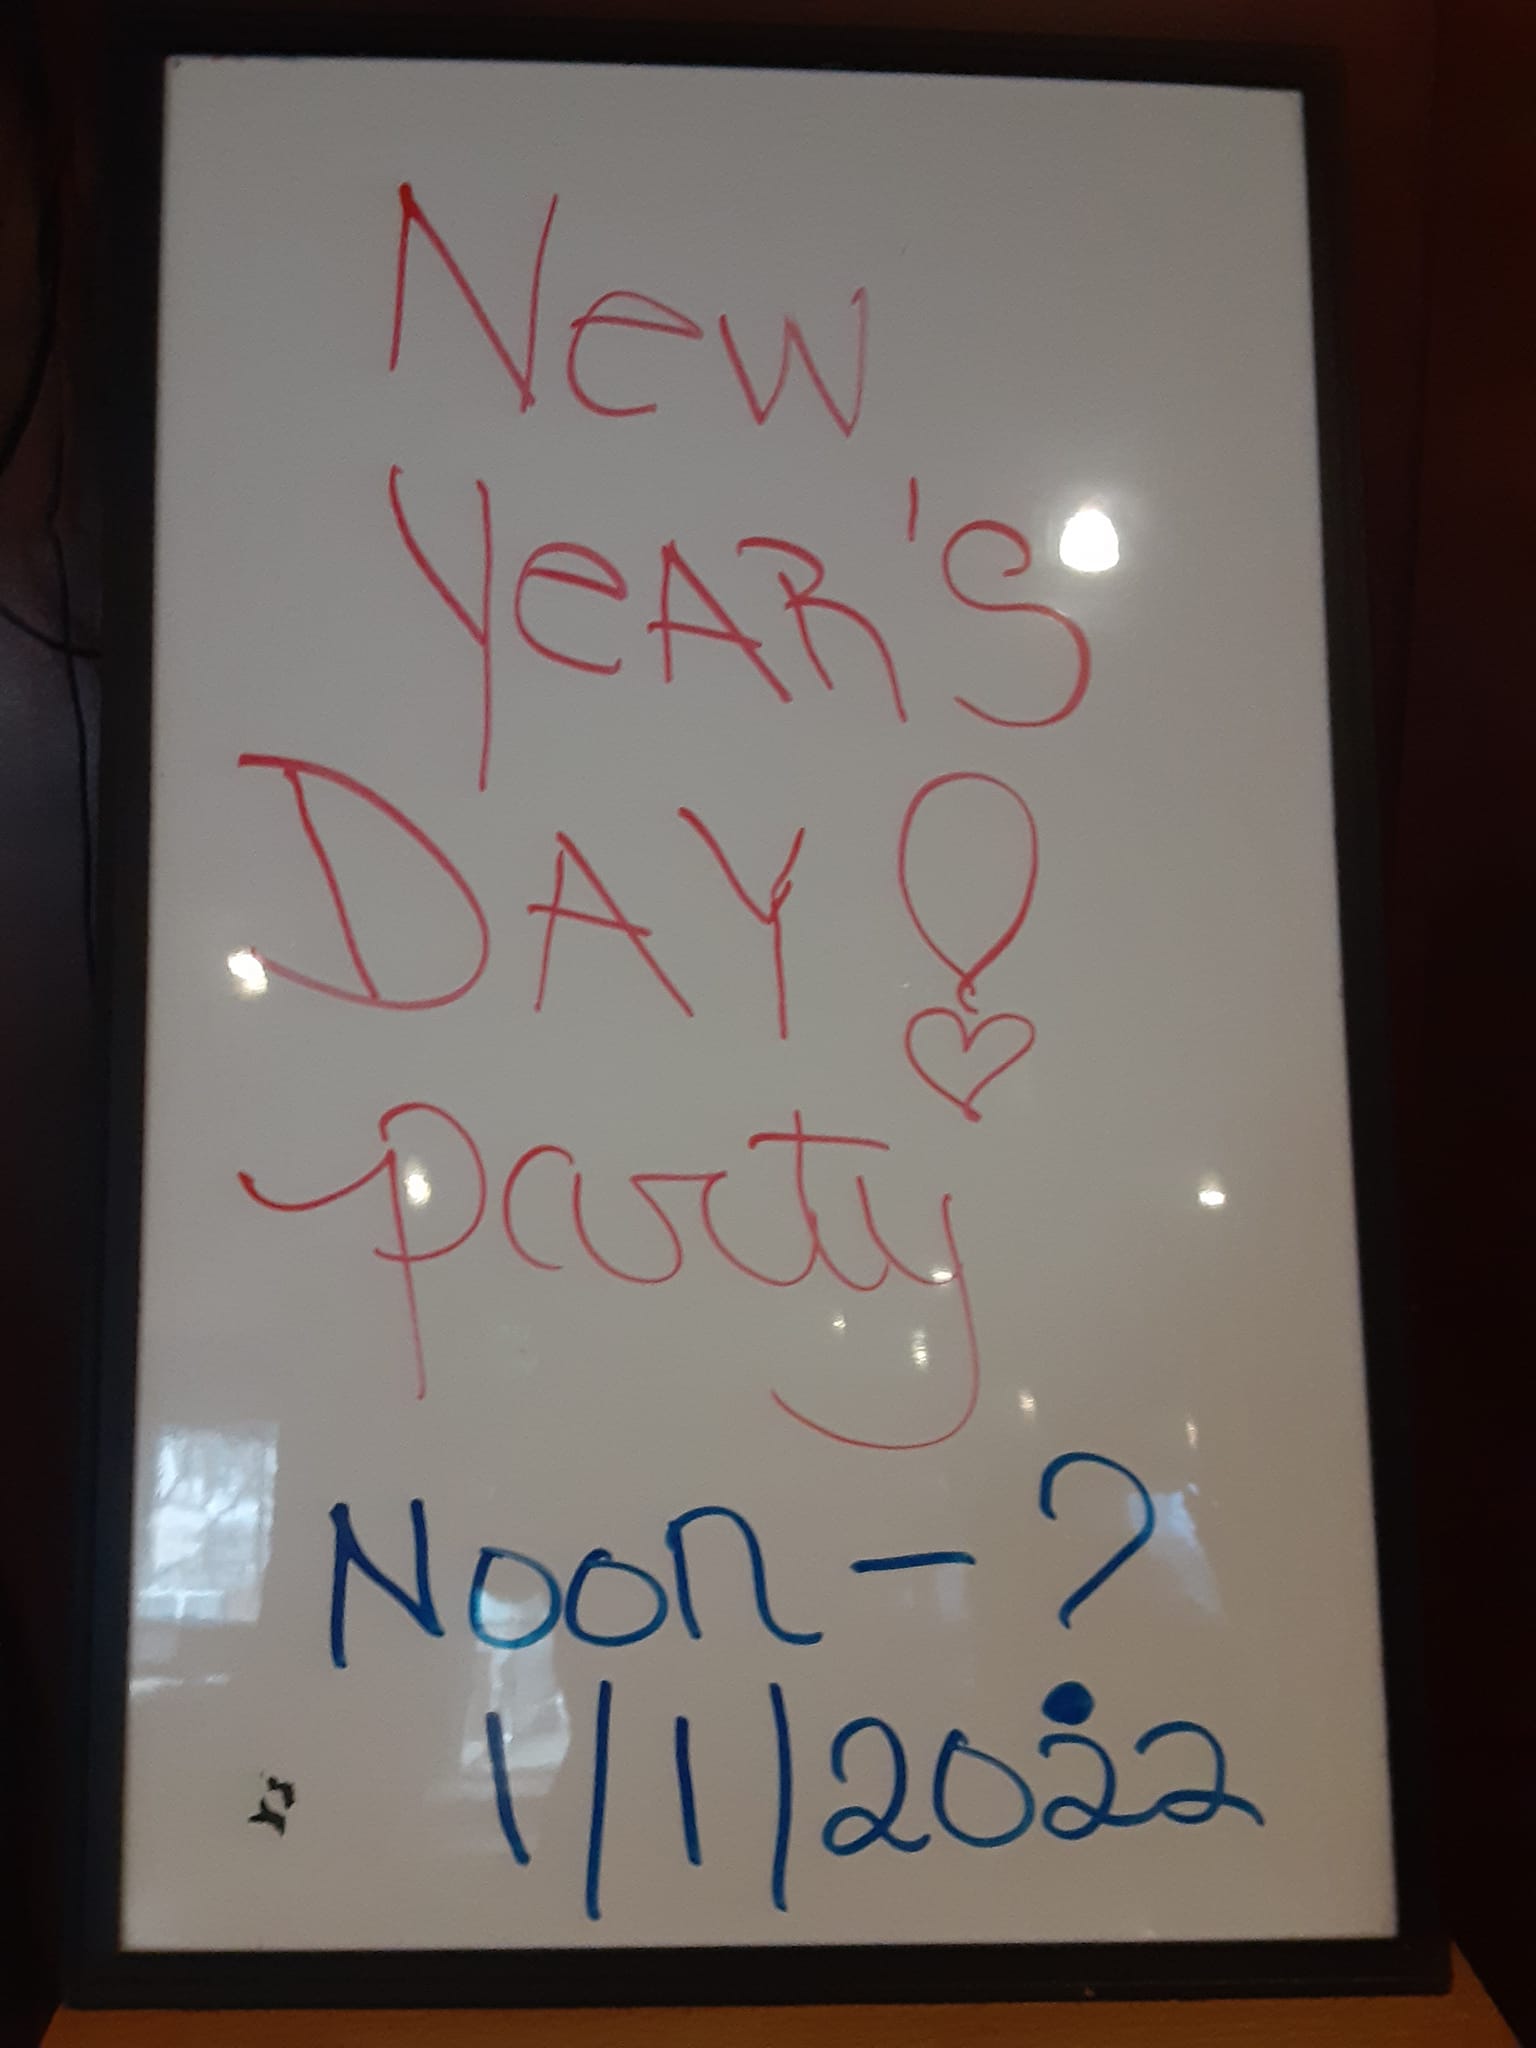 New
YeAR's
DAY!
party
Noon - ?
1/1/2022